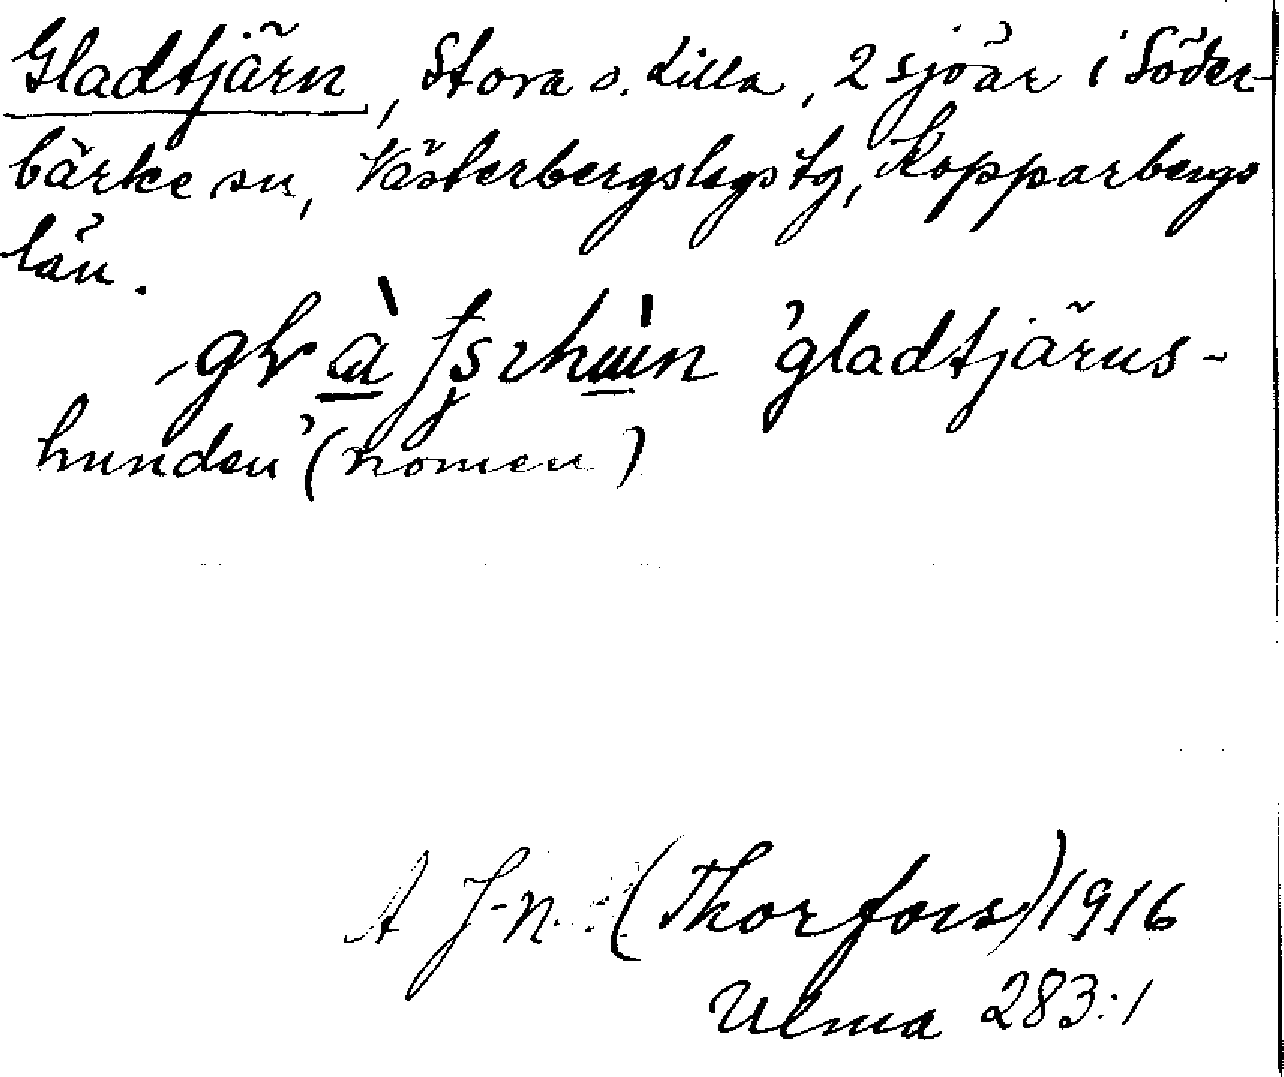 Gladtjärn, Stora o. Lilla, 2 sjöar i Söder-
bärke sn, Västerbergslags tg, Kopparbergs
län.
'gladtjärns-
hunden' (nomen)
A J-n. (Thorfors) 1916
Ulma 283:1